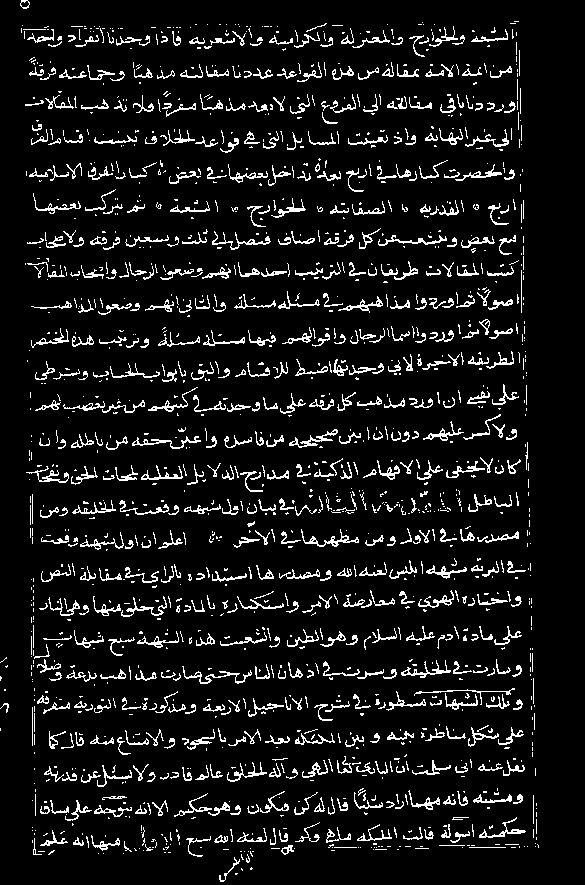 الشيعة والخوارج والمعتزلة والكرامية والاشعرية فاذا وجدنا انفراد واحد
من ائمة الامة بمقالة من هذه القواعد عددنا مقالته مذهبا وجماعته فرقة
ورددنا باقي مقالته الى الفروع التي لا يعد مذهبا مفردا ولا تذهب المقالات
الى غير النهاية واذ تعينت المسايل التي هي قواعد الخلاف تبينت اقسام الفرق
وانحصرت كبارها في اربع بعد ان تداخل بعضها في بعض كبار الفرق الاسلامية
اربع القدرية الصفاتية الخوارج الشيعة ثم يتركب بعضها
مع بعض ويتشعب عن كل فرقة اصناف فتصل الى ثلث وسبعين فرقة ولاصحاب
كتب المقالات طريقان في الترتيب احدهما انهم وضعوا الرجال واصحاب المقالات
اصولا ثم اوردوا مذاهبهم في مسئلة مسئلة والثاني انهم وضعوا المذاهب
اصولا ثم اوردوا اسما الرجال واقوالهم فيها مسئلة مسئلة وترتيب هذه المختصر
الطريقة الاخيرة لاني وجدتها اضبط للاقسام واليق بابواب الحساب وشرطي
على نفسي ان اورد مذهب كل فرقة على ما وجدته في كتبهم من غير تعصب لهم
ولا كسر عليهم دون ان ابين صحيحه من فاسده واعين حقه من باطله وان
كان لا يخفى على الافهام الذكية في مدارج الدلايل العقلية لمحات الحق ونفحات
الباطل المقدمة الثالثة في بيان اول شبهة وقعت في الخليقة ومن
مصدرها في الاول ومن مظهرها في الآخر اعلم ان اول شبهة وقعت
في البرية شبهة ابليس لعنه الله ومصدرها استبداده بالراي في مقابلة النص
واختياره الهوى في معارضة الامر واستكباره بالمادة التي خلق منها وهي النار
على مادة ادم عليه السلام وهو الطين وانشعبت هذه الشبهة سبع شبهات
وسارت في الخليقة وسرت في اذهان الناس حتى صارت مذاهب بدعة وضلالة
وتلك الشبهات مسطورة في شرح الاناجيل الاربعة ومذكورة في التورية متفرقة
على شكل مناظرة بينه و بين الملئكة بعد الامر بالسجود والامتناع منه قال كما
نقل عنه اني سلمت ان الباري تعالى الهي واله الخلق عالم قادر ولا يسئل عن قدرته
ومشيته فانه مهما اراد شيئا قال له كن فيكون وهو حكيم الا انه يتوجه على مساق
حكمته اسولة قالت المليكة ماهي وكم قال لعنه الله سبع منها انه علم